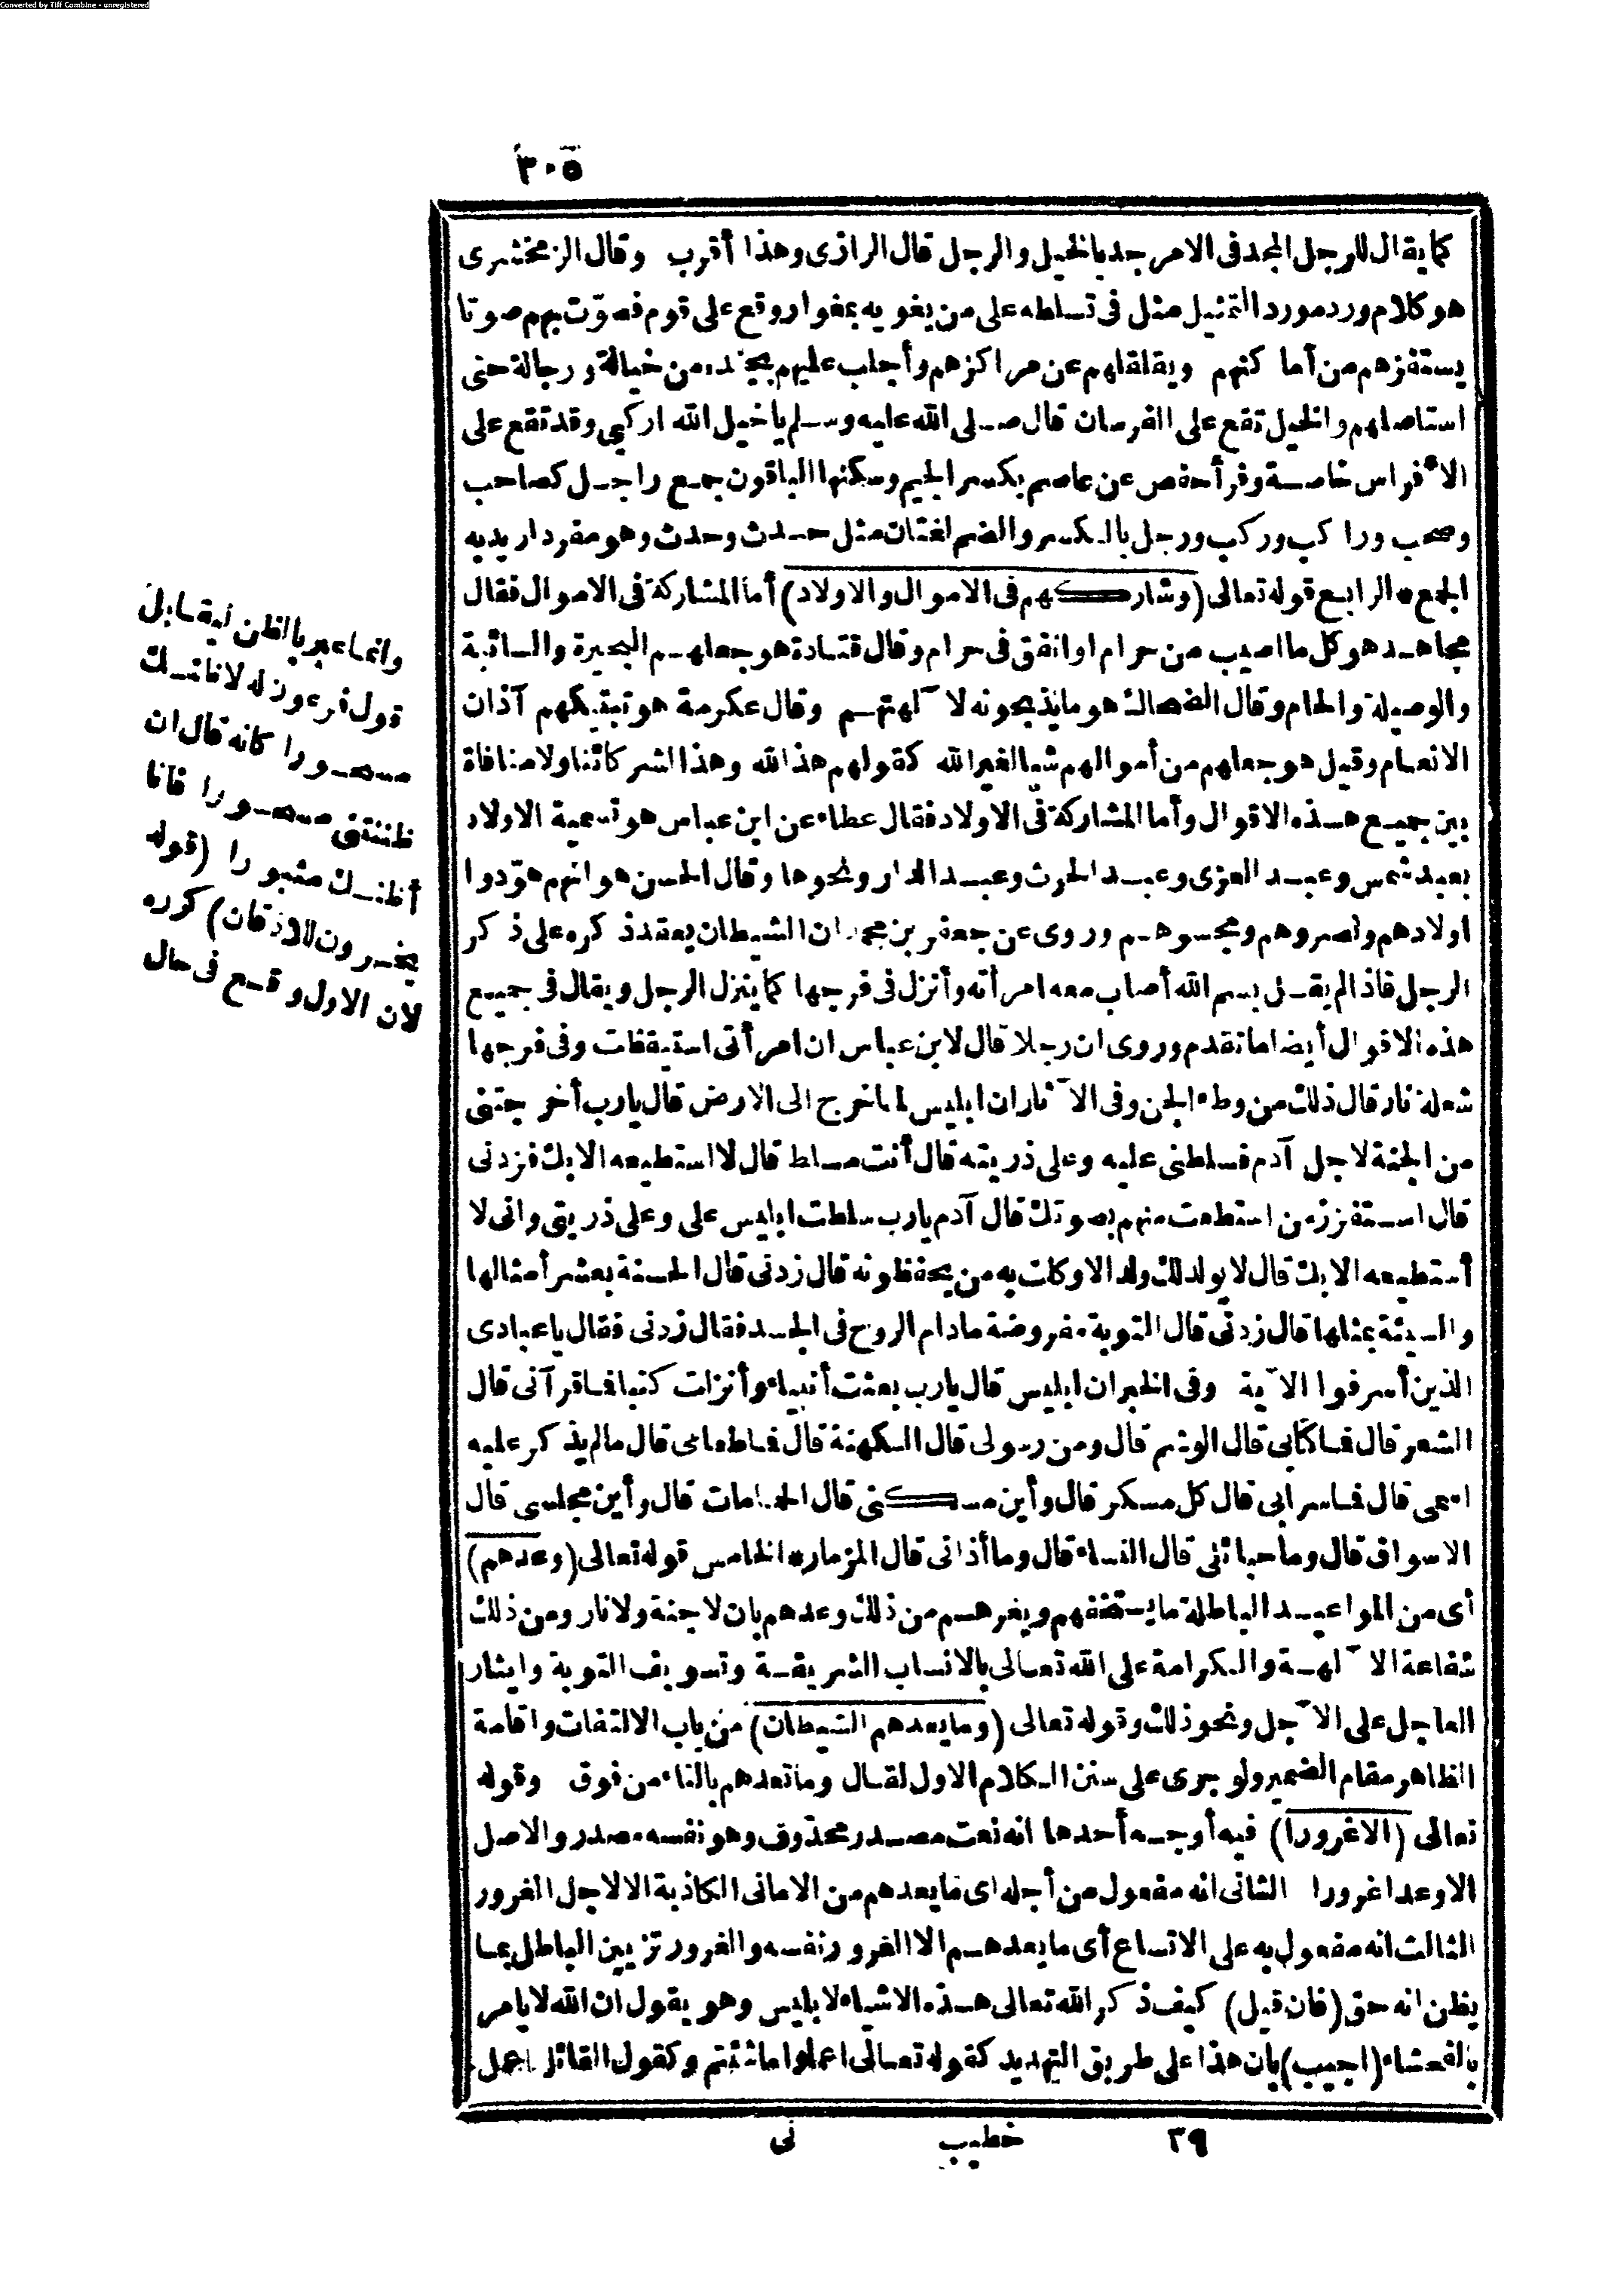 Converted by Tiff Combine - unregistered
٣٠٥
كما يقال للرجل المجد فى الامر جد بالخيل والرجل قال الرازى وهذا أقرب وقال الزمخشرى
هو كلام ورد مورد التمثيل مثل فى تسلطه على من يغويه بمغوار وقع على قوم فصوّت بهم صوتا
يستفزهم من أماكنهم ويقلقلهم عن مراكزهم وأجلب عليهم بجنده من خيالة ورجالة حتى
استاصلهم والخيل تقع على الفرسان قال صلى الله عليه وسلم يا خيل الله اركبى وقد تقع على
الافراس خاصة وقرأ حفص عن عاصم بكسر الجيم وسكنها الباقون جمع راجل كصاحب
وصحب وراكب وركب ورجل بالكسر والضم لغتان مثل حدث وحدث وهو مفرد اريد به
الجمع * الرابع قوله تعالى (وشاركهم فى الاموال والاولاد) أما المشاركة فى الاموال فقال
مجاهد هو كل ما اصيب من حرام او انفق فى حرام وقال قتادة هو جعلهم البحيرة والسائبة
والوصيلة والحام وقال الضحاك هو ما يذبحونه لآلهتهم وقال عكرمة هو تبتيكهم آذان
الانعام وقيل هو جعلهم من أموالهم شيأ لغير الله كقولهم هذا لله وهذا لشركائنا ولا منافاة
بين جميع هذه الاقوال وأما المشاركة فى الاولاد فقال عطاء عن ابن عباس هو تسمية الاولاد
بعبد شمس وعبد العزى وعبد الحرث وعبد الدار ونحوها وقال الحسن هو انهم هوّدوا
اولادهم ونصروهم ومجسوهم وروى عن جعفر بن محمد ان الشيطان يعقد ذكره على ذكر
الرجل فاذا لم يقل بسم الله أصاب معه امرأته وأنزل فى فرجها كما ينزل الرجل ويقال فى جميع
هذه الاقوال أيضا ما تقدم وروى ان رجلا قال لابن عباس ان امرأتى استيقظت وفى فرجها
شعلة نار قال ذلك من وطء الجن وفى الآثار ان ابليس لما خرج الى الارض قال يا رب أخرجتنى
من الجنة لاجل آدم فسلطنى عليه وعلى ذريته قال أنت مسلط قال لا استطيعه الا بك فزدنى
قال استفزز من استطعت منهم بصوتك قال آدم يا رب سلطت ابليس على وعلى ذريتى وانى لا
أستطيعه الا بك قال لا يولد لك ولد الا وكلت به من يحفظونه قال زدنى قال الحسنة بعشر أمثالها
والسيئة بمثلها قال زدنى قال التوبة مفروضة مادام الروح فى الجسد فقال زدنى فقال يا عبادى
الذين أسرفوا الآية وفى الخبر ان ابليس قال يا رب بعثت أنبياء وأنزلت كتبا فما قرآنى قال
الشعر قال فما كتابى قال الوشم قال ومن رسولى قال الكهنة قال فما طعامى قال مالم يذكر عليه
اسمى قال فما شرابى قال كل مسكر قال وأين مسكنى قال الحمامات قال وأين مجلسى قال
الاسواق قال وما حبائلى قال النساء قال وما أذانى قال المزمار * الخامس قوله تعالى (وعدهم)
أى من المواعيد الباطلة ما يستخفهم ويغرهم من ذلك وعدهم بان لا جنة ولا نار ومن ذلك
شفاعة الآلهة والكرامة على الله تعالى بالانساب الشريفة وتسويف التوبة وايثار
العاجل على الآجل ونحو ذلك وقوله تعالى (وما يعدهم الشيطان) من باب الالتفات واقامة
الظاهر مقام الضمير ولو جرى على سنن الكلام الاول لقال وما تعدهم بالتاء من فوق وقوله
تعالى (الا غرورا) فيه أوجه أحدها انه نعت مصدر محذوف وهو نفسه مصدر والاصل
الا وعدا غرورا الثانى انه مفعول من أجله اى ما يعدهم من الامانى الكاذبة الا لاجل الغرور
الثالث انه مفعول به على الاتساع أى ما يعدهم الا الغرور نفسه والغرور تزيين الباطل بما
يظن انه حق (فان قيل) كيف ذكر الله تعالى هذه الاشياء لابليس وهو يقول ان الله لا يامر
بالفحشاء (اجيب) بان هذا على طريق التهديد كقوله تعالى اعملوا ما شئتم وكقول القائل اعمل
وانما عبر بالظن ليقابل
قول فرعون له لاظنك
مسحورا كانه قال ان
ظننتنى مسحورا فانا
أظنك مثبورا (قوله
يخرون للاذقان) كرره
لان الاول وقع فى حال
٣٩ خطيب نى